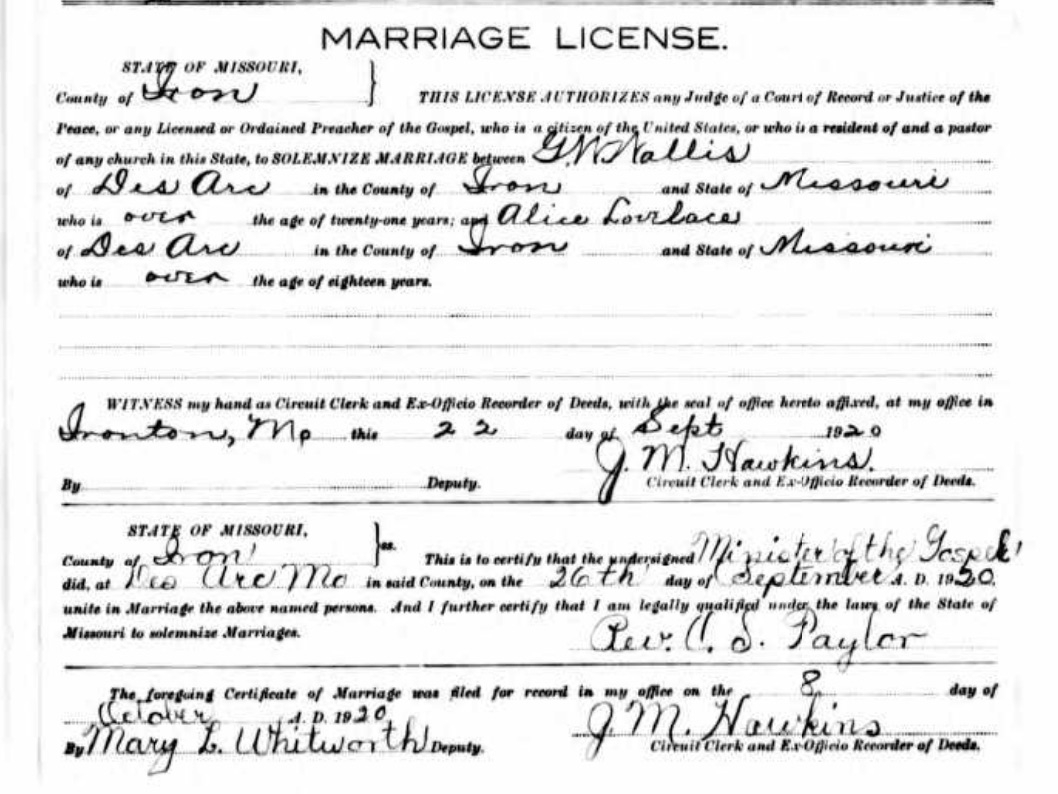 MARRIAGE LICENSE.
STATE OF MISSOURI,
County of Iron THIS LICENSE AUTHORIZES any Judge of a Court of Record or Justice of the
Peace, or any Licensed or Ordained Preacher of the Gospel, who is a citizen of the United States, or who is a resident of and a pastor
of any church in this State, to SOLEMNIZE MARRIAGE between G.W. Wallis
of Des Arc in the County of Iron and State of Missouri
who is over the age of twenty-one years; and Alice Lovelace
of Des Arc in the County of Iron and State of Missouri
who is over the age of eighteen years.
WITNESS my hand as Circuit Clerk and Ex-Officio Recorder of Deeds, with the seal of office hereto affixed, at my office in
Ironton, Mo this 22 day of Sept 1920
J. M. Hawkins.
By Deputy. Circuit Clerk and Ex-Officio Recorder of Deeds.
STATE OF MISSOURI,
County of Iron ss. This is to certify that the undersigned Minister of the Gospel
did, at Des Arc Mo in said County, on the 26th day of September A. D. 1920,
unite in Marriage the above named persons. And I further certify that I am legally qualified under the laws of the State of
Missouri to solemnize Marriages. Rev. S.
The foregoing Certificate of Marriage was filed for record in my office on the 8 day of
October A. D. 1920 J. M. Hawkins
By Mary L. Whitworth Deputy. Circuit Clerk and Ex-Officio Recorder of Deeds.